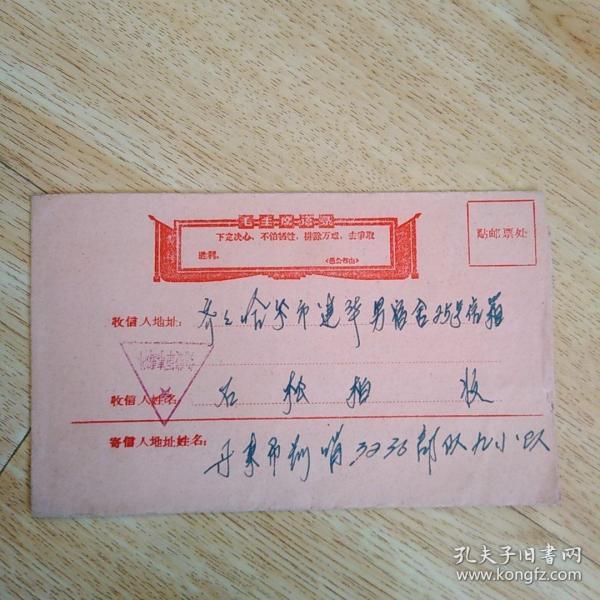 毛主席语录
下定决心，不怕牺牲，排除万难，去争取
胜利。
《愚公移山》
贴邮票处
收信人地址： 齐齐哈尔市建华男宿舍25号信箱
收信人姓名： 石松柏 收
寄信人地址姓名： 丹东市 3236部队九小队
孔夫子旧书网
www.kongfz.com